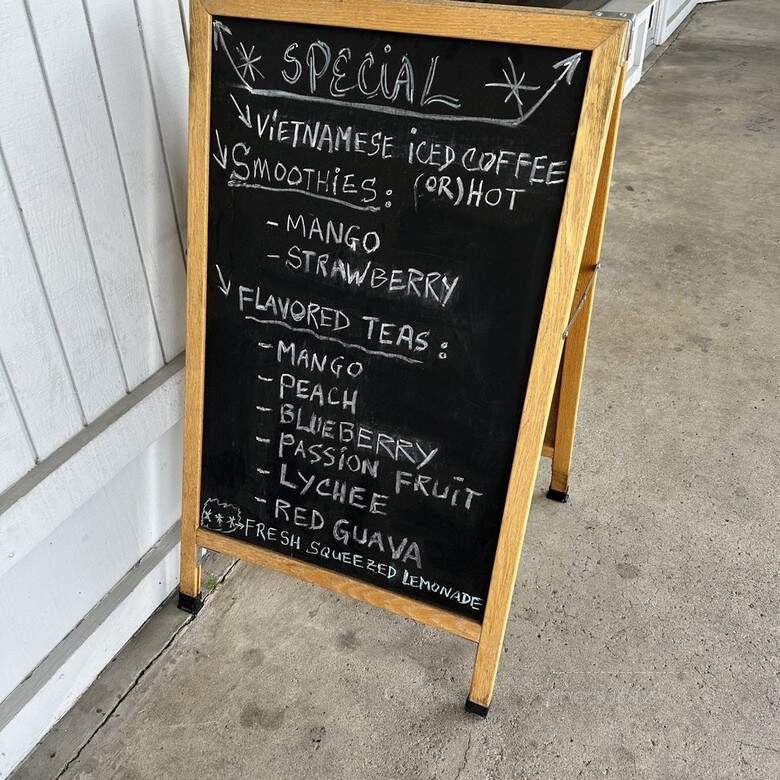 SPECIAL
VIETNAMESE ICED COFFEE
(OR) HOT
SMOOTHIES:
- MANGO
- STRAWBERRY
FLAVORED TEAS:
- MANGO
- PEACH
- BLUEBERRY
- PASSION FRUIT
- LYCHEE
- RED GUAVA
FRESH SQUEEZED LEMONADE